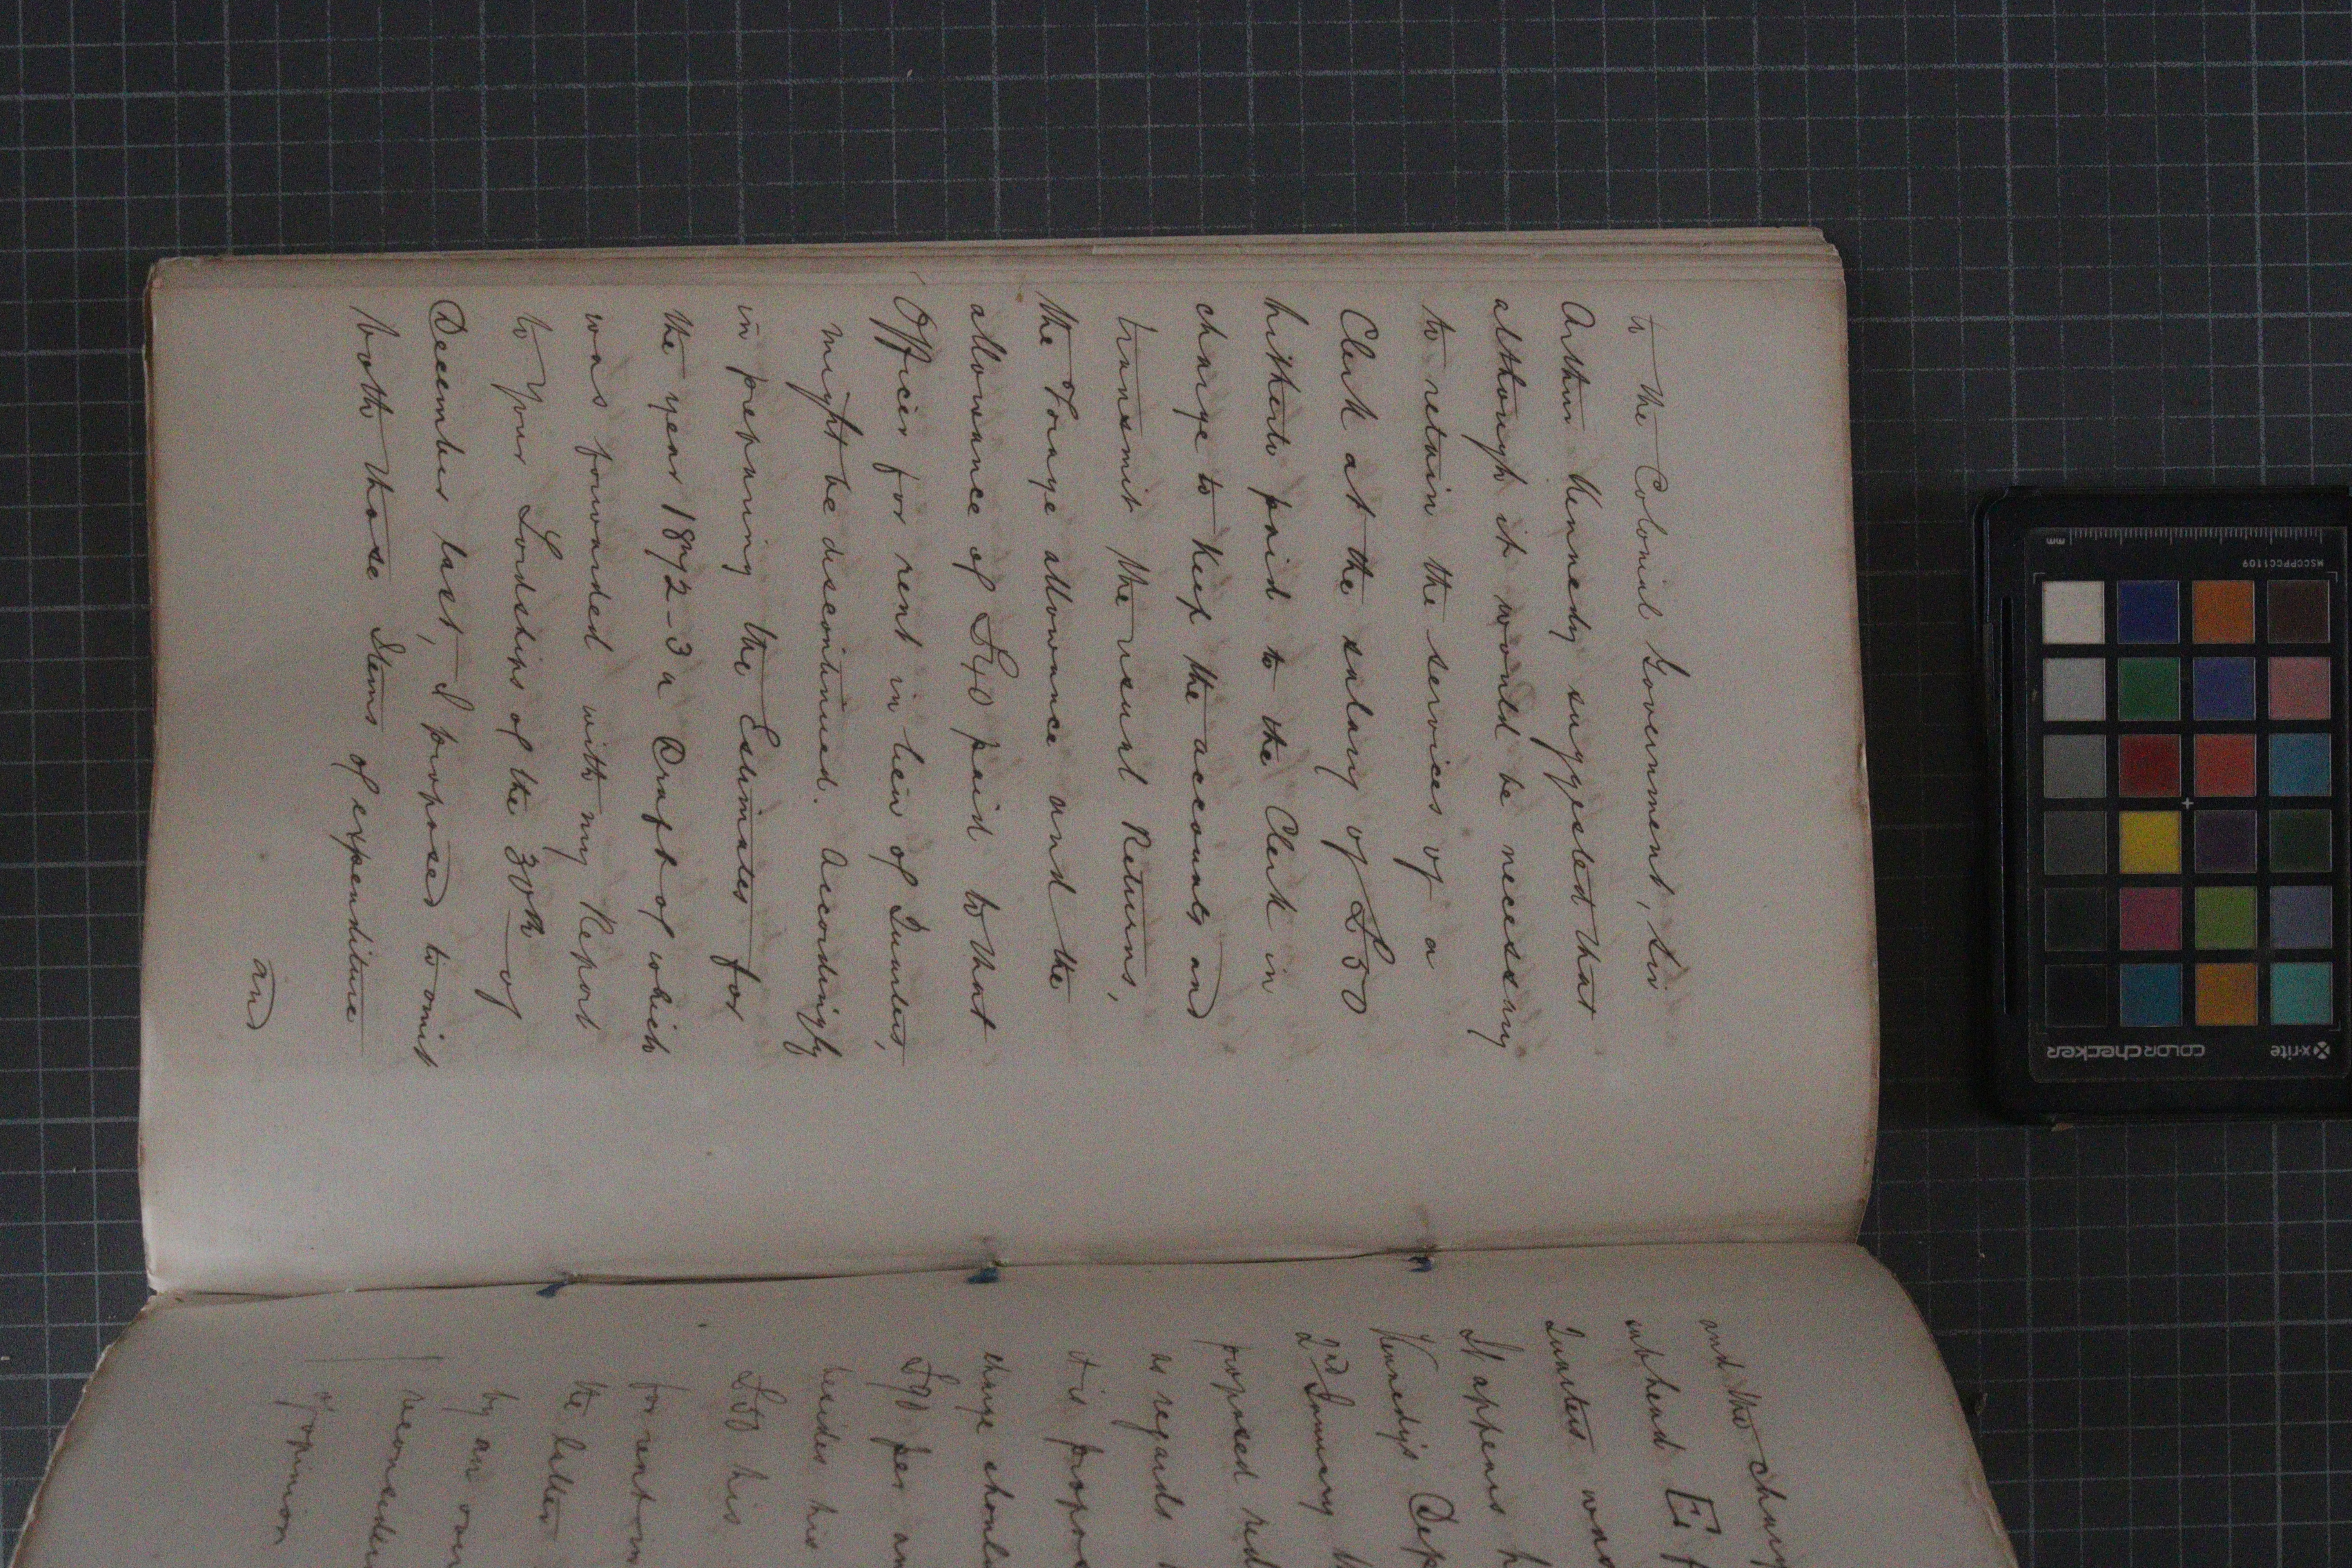 to the Colonial Government, Sir
Arthur Kennedy suggested that
although it would be necessary
to retain the services of a
Clerk at the salary of £50
hitherto paid to the Clerk in
charge to keep the accounts and
transmit the usual Returns,
the Forage allowance and the
allowance of £40 paid to that
Officer for rent in lieu of Quarters,
might be discontinued. Accordingly
in preparing the Estimates for
the year 1872-3 a Draft of which
was forwarded with my Report
to Your Lordships of the 30th of
December last, I proposed to omit
both those Items of expenditure
and
and the charge
subhead E f
Quarters was
It appears h
Kennedy's Desp
2nd January th
proposed red
as regards
it is propos
charge shoul
£90 per an
besides his
£50 his
for rent in
the latter
by an over
reconsider
of opinion
mm
MSCCPPCC1109
x-rite
colorchecker